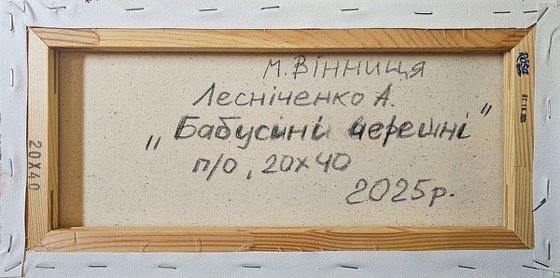 м.Вінниця
Лесніченко А.
„Бабусині черешні"
п/о, 20х40
2025р.
20X40